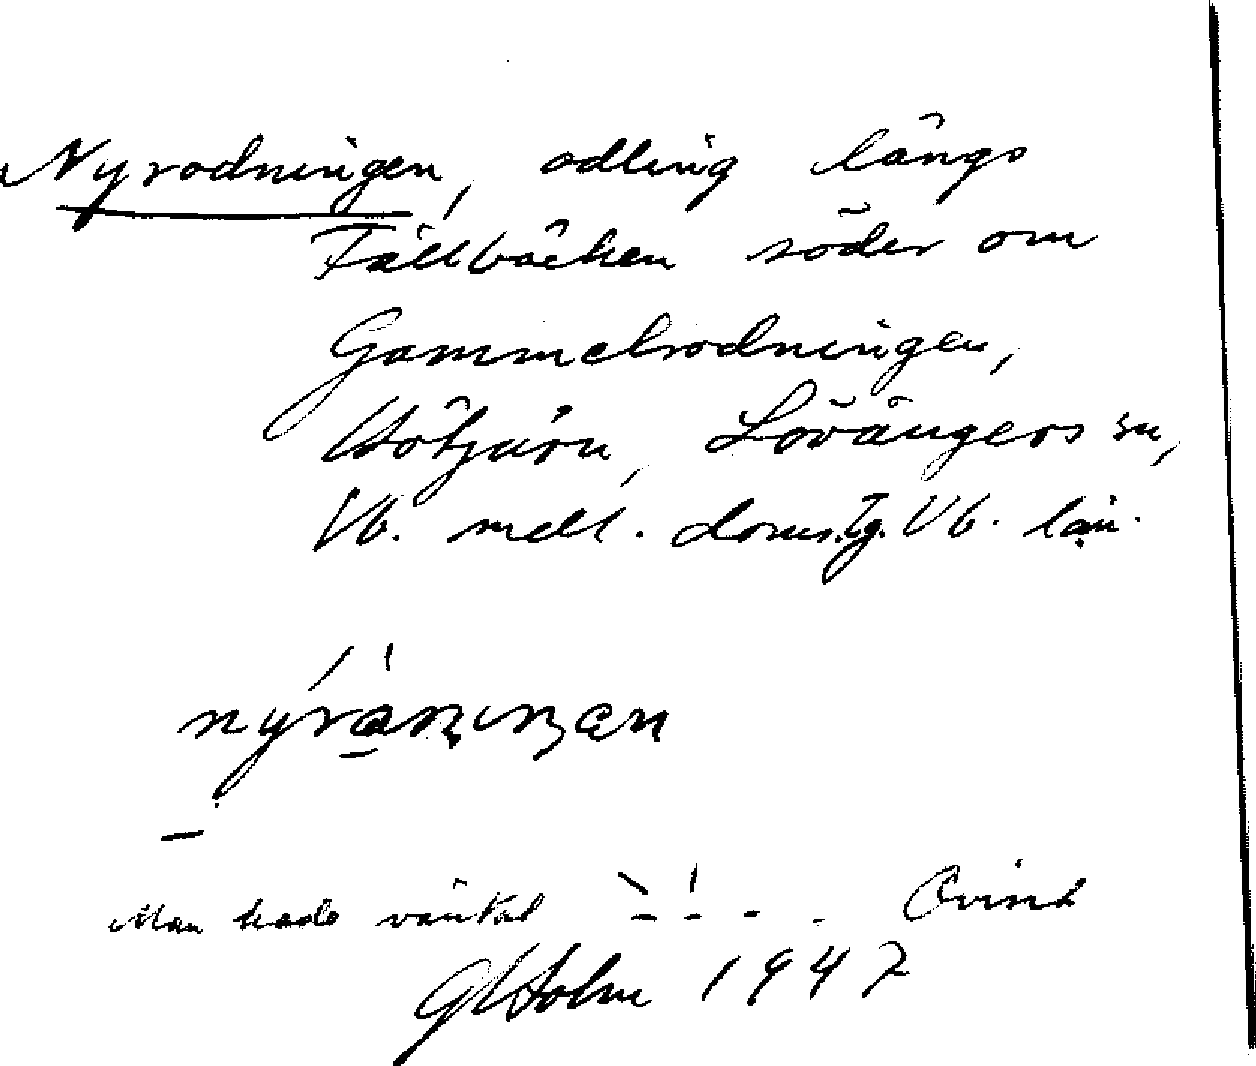 Nyrodningen, odling längs
Fällbäcken söder om
Gammelrodningen,
Hötjärn, Lövångers sn,
Vb. mell. doms.tg. Vb. län.
Man hade väntat Övind
GHolm 1947